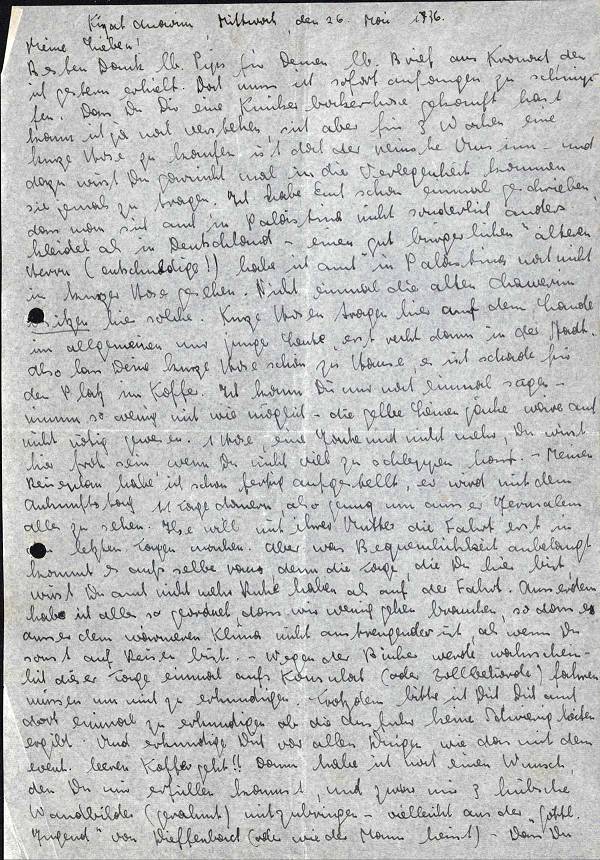 Kirjat Anavim, Mittwoch, den 26. Mai 1936.
Meine Lieben!
Besten Dank lb. Paps für Deinen lb. Brief aus den
ich gestern erhielt. Doch muss ich sofort anfangen zu schimp-
fen. Dass Du Dir eine Knickerbockerhose gekauft hast
kann ich ja noch verstehen, sich aber für 3 Wochen eine
kurze Hose zu kaufen ist doch der reinste Unsinn - und
dazu wirst Du garnicht mal in die Verlegenheit kommen
sie jemals zu tragen. Ich habe Euch schon einmal geschrieben
dass man sich auch in Palästina nicht sonderlich anders
kleidet als in Deutschland - einen "gut bürgerlichen" älteren
Herrn (entschuldige!!) habe ich auch in Palästina noch nicht
in kurzer Hose gesehen. Nicht einmal die alten Chawerim
besitzen hier solche. Kurze Hosen tragen hier auf dem Lande
im allgemeinen nur junge Leute, erst recht dann in der Stadt.
Also lass Deine kurze Hose schön zu Hause, es ist schade für
den Platz im Koffer. Ich kann Dir nur noch einmal sagen -
nimm so wenig mit wie möglich - die gelbe Leinenjacke wäre auch
nicht nötig gewesen. 1 Hose eine Jacke und nicht mehr, Du wirst
hier froh sein, wenn Du nicht viel zu schleppen hast. - Meinen
Reiseplan habe ich schon fertig aufgestellt, er wird mit dem
Ankunftstag 11 Tage dauern, also genug um ausser Jerusalem
alles zu sehen. Ilse will mit ihrer Mutter die Fahrt erst in
den letzten Tagen machen. Aber was Bequemlichkeit anbelangt
kommt es aufs selbe raus denn die Tage, die Du hier bist,
wirst Du auch nicht mehr Ruhe haben als auf der Fahrt. Ausserdem
habe ich alles so geordnet dass wir wenig gehen brauchen, so dass es
ausser dem wärmeren Klima nicht anstrengender ist, als wenn Du
sonst auf Reisen bist. - Wegen der Bücher werde wahrschein-
lich dieser Tage einmal aufs Konsulat (oder Zollbehörde) fahren
müssen um mich zu erkundigen. Trotzdem bitte ich Dich Dich auch
dort einmal zu erkundigen ob die Ausfuhr keine Schwierigkeiten
ergibt. Und erkundige Dich vor allen Dingen wie das mit dem
event. leeren Koffer geht!! Dann habe ich noch einen Wunsch,
den Du mir erfüllen kannst, und zwar mir 3 hübsche
Wandbilder (gerahmt) mitzubringen - vielleicht aus der "Göttl.
Jugend" von Dieffenbach (oder wie der Mann heisst) - Dass Du